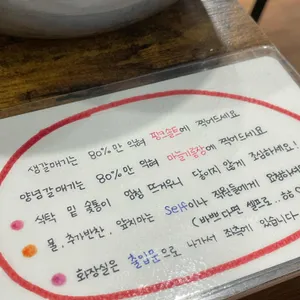 생갈매기는 80%만 익혀 핑크솔트에 찍어드세요
양념갈매기는 80%만 익혀 마늘기름장에 찍어드세요
식탁 밑 숯통이 엄청 뜨거우니 닿이지 않게 조심하세요!
물, 추가반찬, 앞치마는 Self이나 직원들에게 요청하세요
(바쁘다면 셀프로..ㅎㅎ)
화장실은 출입문으로 나가서 좌측에 있습니다